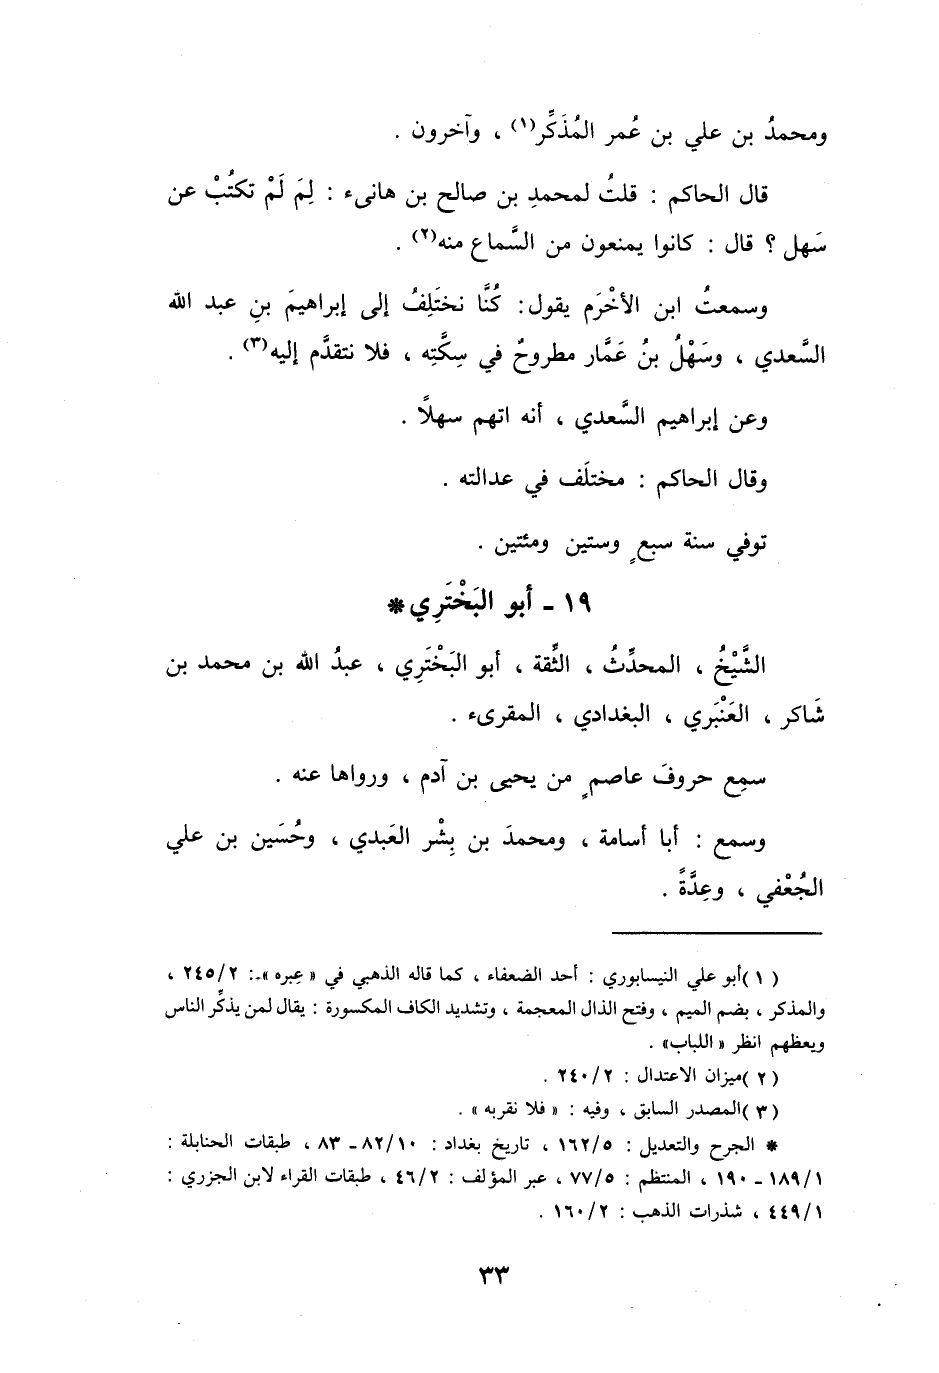 ومحمدُ بن علي بن عُمر المُذَكِّر(١) ، وآخرون .
قال الحاكم : قلتُ لمحمدِ بن صالح بن هانىء : لِمَ لَمْ تكتُبْ عن
سَهل ؟ قال : كانوا يمنعون من السَّماع منه(٢) .
وسمعتُ ابن الأخْرَم يقول: كُنَّا نختَلِفُ إلى إبراهيمَ بنِ عبد الله
السَّعدي ، وسَهْلُ بنُ عَمَّار مطروحٌ في سِكَّتِه ، فلا نتقدَّم إليه(٣) .
وعن إبراهيم السَّعدي ، أنه اتهم سهلاً .
وقال الحاكم : مختلَف في عدالته .
توفي سنة سبعٍ وستين ومئتين .
١٩ - أبو البَخْتَرِي *
الشَّيْخُ ، المحدِّثُ ، الثِّقة ، أبو البَخْتَرِي ، عبدُ الله بن محمد بن
شَاكر ، العَنْبَري ، البغدادي ، المقرىء .
سمِع حروفَ عاصمٍ من يحيى بن آدم ، ورواها عنه .
وسمع : أبا أسامة ، ومحمدَ بن بِشْر العَبدي ، وحُسَين بن علي
الجُعْفي ، وعِدَّةً .
(١)أبو علي النيسابوري : أحد الضعفاء ، كما قاله الذهبي في « عِبره »ـ: ٢٤٥/٢ ،
والمذكر ، بضم الميم ، وفتح الذال المعجمة ، وتشديد الكاف المكسورة : يقال لمن يذكِّر الناس
ويعظهم انظر « اللباب» .
(٢)ميزان الاعتدال : ٢٤٠/٢ .
(٣)المصدر السابق ، وفيه : « فلا نقربه » .
* الجرح والتعديل : ١٦٢/٥ ، تاريخ بغداد : ٨٢/١٠ ـ ٨٣ ، طبقات الحنابلة :
١٨٩/١ ـ ١٩٠ ، المنتظم : ٧٧/٥ ، عبر المؤلف : ٤٦/٢ ، طبقات القراء لابن الجزري :
٤٤٩/١ ، شذرات الذهب : ١٦٠/٢ .
٣٣